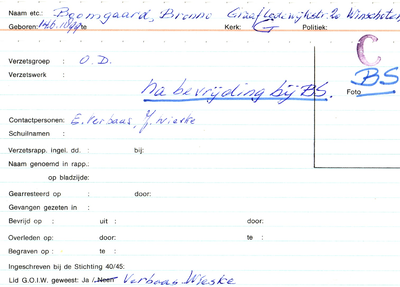 Naam etc.: Boomgaard, Brenno Graaf Lodewijkstr. 20 Winschoten
Geboren: te Kerk: G Politiek:
C
Verzetsgroep : O.D.
BS
Verzetswerk :
Na bevrijding bij BS.
Foto
Contactpersonen: E. Verbaas, J. Nieske
Schuilnaam :
Verzetsrapp. ingel. dd. : bij:
Naam genoemd in rapp.:
op bladzijde:
Gearresteerd op : door:
Gevangen gezeten in :
Bevrijd op : uit : door:
Overleden op: door: te :
Begraven op : te :
Ingeschreven bij de Stichting 40/45:
Lid G.O.I.W. geweest: Ja /Neen Verbaas Wieske